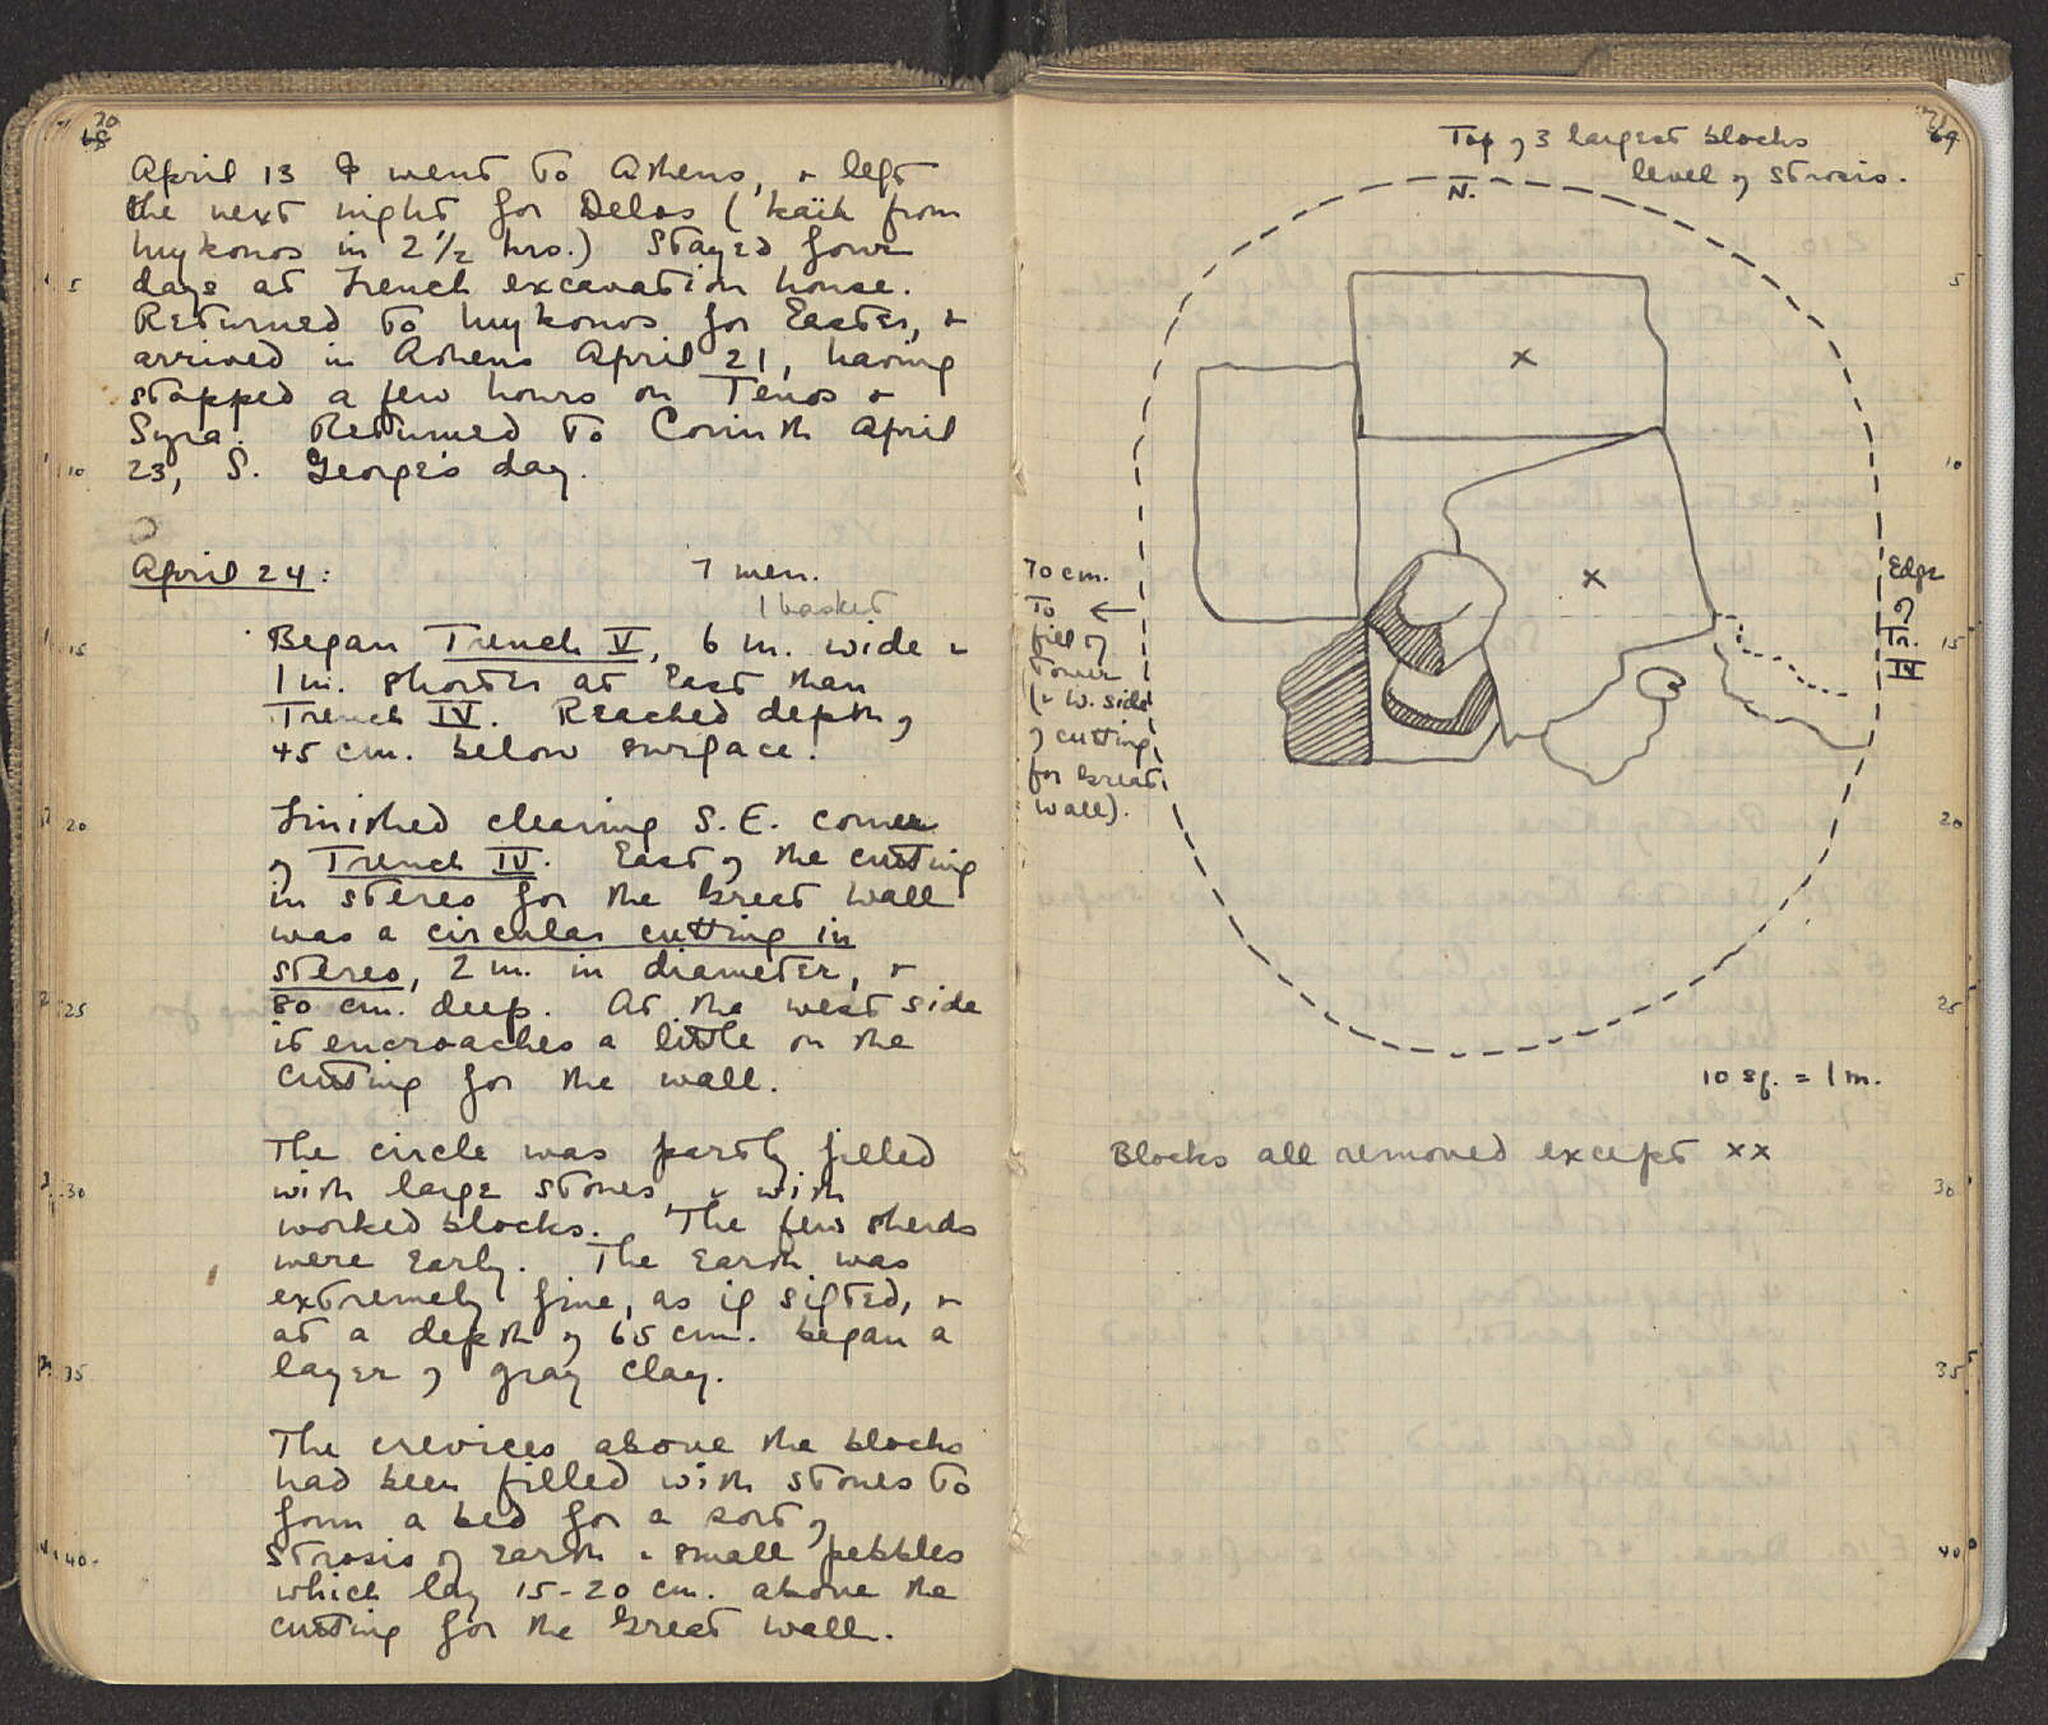 70
68
April 13 I went to Athens, & left
the next night for Delos (kaïk from
Mykonos in 2 1/2 hrs.) Stayed four
days at French excavation house.
Returned to Mykonos for Easter, &
arrived in Athens April 21, having
stopped a few hours on Tenos &
Syra. Returned to Corinth April
23, S. George's day.
April 24: 7 men.
1 basket
Began Trench V, 6 m. wide &
1 m. shorter at East than
Trench IV. Reached depth of
45 cm. below surface.
Finished clearing S.E. corner
of Trench IV. East of the cutting
in stereo for the Great Wall
was a circular cutting in
stereo, 2 m. in diameter, &
80 cm. deep. At the west side
it encroaches a little on the
cutting for the wall.
The circle was partly filled
with large stones, & with
worked blocks. The few sherds
were Early. The Earth was
extremely fine, as if sifted, &
at a depth of 65 cm. began a
layer of gray clay.
The crevices above the blocks
had been filled with stones to
form a bed for a sort of
strosis of Earth & small pebbles
which lay 15-20 cm. above the
cutting for the Great Wall.
5
10
15
20
25
30
35
40
69
Top of 3 largest blocks
level of strosis.
N.
x
x
70 cm.
to ←
fill of
Tower
(& W. side
of cutting
for Great
Wall).
Edge
of
Tr.
IV
10 sq. = 1 m.
Blocks all removed except xx
5
10
15
20
25
30
35
40